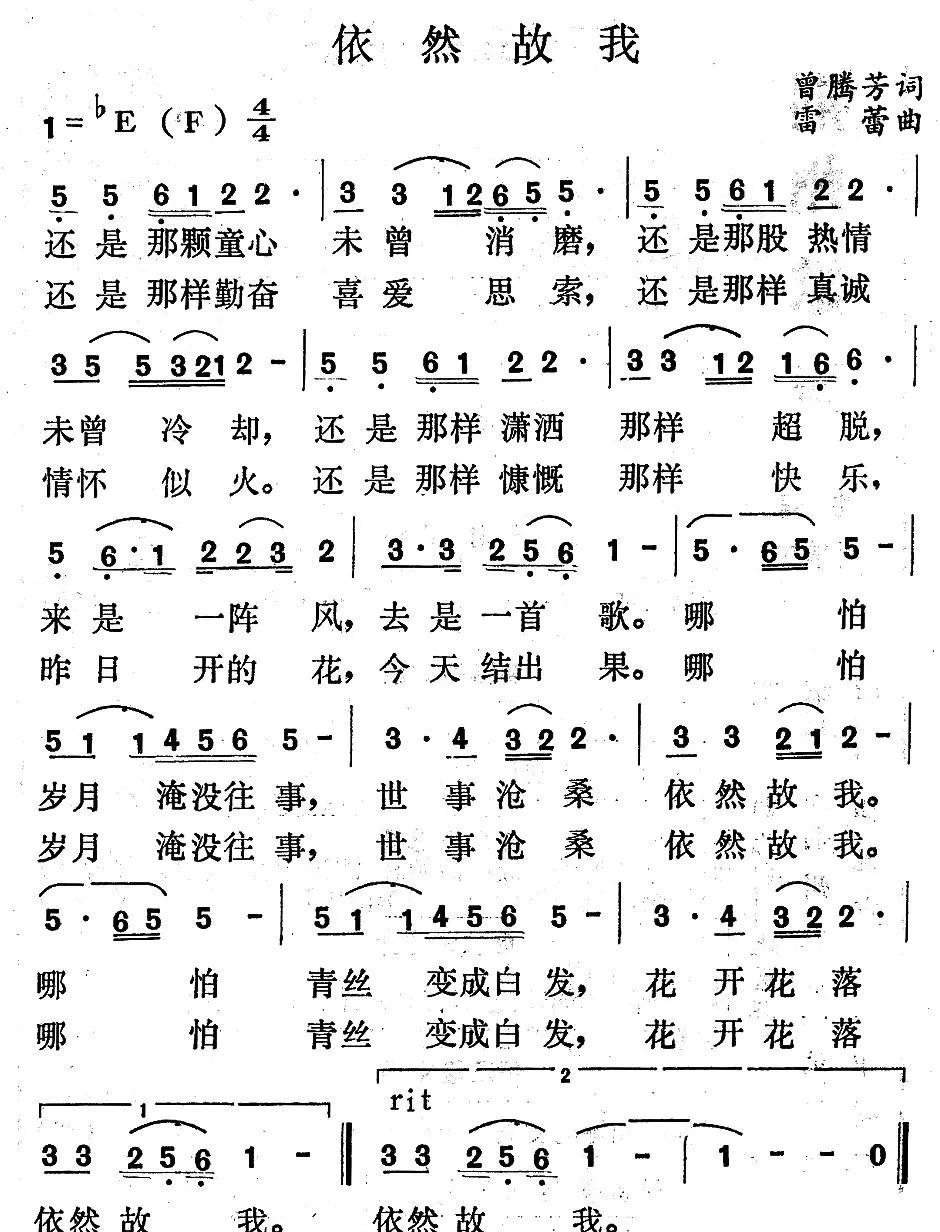 依然故我
曾腾芳词
1=♭E（F）4/4
雷蕾曲
5 5 6 1 2 2 · | 3 3 1 2 6 5 5 · | 5 5 6 1 2 2 · |
还是那颗童心 未曾 消磨, 还是那股热情
还是那样勤奋 喜爱 思索, 还是那样真诚
3 5 5 3 2 1 2 - | 5 5 6 1 2 2 · | 3 3 1 2 1 6 6 · |
未曾 冷却, 还是那样潇洒 那样 超脱,
情怀 似火。还是那样慷慨 那样 快乐,
5 6 · 1 2 2 3 2 | 3 · 3 2 5 6 1 - | 5 · 6 5 5 - |
来是 一阵 风, 去是一首 歌。哪 怕
昨日 开的 花, 今天结出 果。哪 怕
5 1 1 4 5 6 5 - | 3 · 4 3 2 2 · | 3 3 2 1 2 - |
岁月 淹没往事, 世事沧桑 依然故我。
岁月 淹没往事, 世事沧桑 依然故我。
5 · 6 5 5 - | 5 1 1 4 5 6 5 - | 3 · 4 3 2 2 · |
哪 怕 青丝 变成白发, 花开花落
哪 怕 青丝 变成白发, 花开花落
2
1 rit
3 3 2 5 6 1 - ‖ 3 3 2 5 6 1 - | 1 - - 0 ‖
依然故 我。 依然故 我。